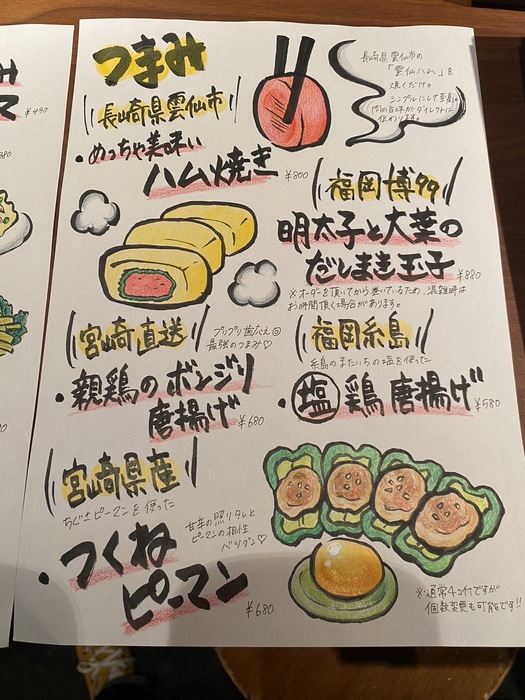 つまみ
長崎県雲仙市
・めっちゃ美味い
ハム焼き ¥800
長崎県雲仙市の
「雲仙ハム」を
焼くだけ。
シンプルにして至高。
肉の旨味がダイレクトに
伝わります。
福岡博多
明太子と大葉の
だしまき玉子 ¥880
※オーダーを頂いてから巻いているため、混雑時は
お時間頂く場合があります。
宮崎直送
プリプリ歯ごたえ◎
最強のつまみ♡
・親鶏のボンジリ
唐揚げ ¥680
福岡糸島
糸島のまたいちの塩を使った
・塩鶏唐揚げ ¥580
宮崎県産
ちぐさピーマンを使った
甘辛の照りタレと
ピーマンの相性
バツグン♡
・つくね
ピーマン ¥680
※通常4コ付ですが
個数変更も可能です!!
み
マ ¥480